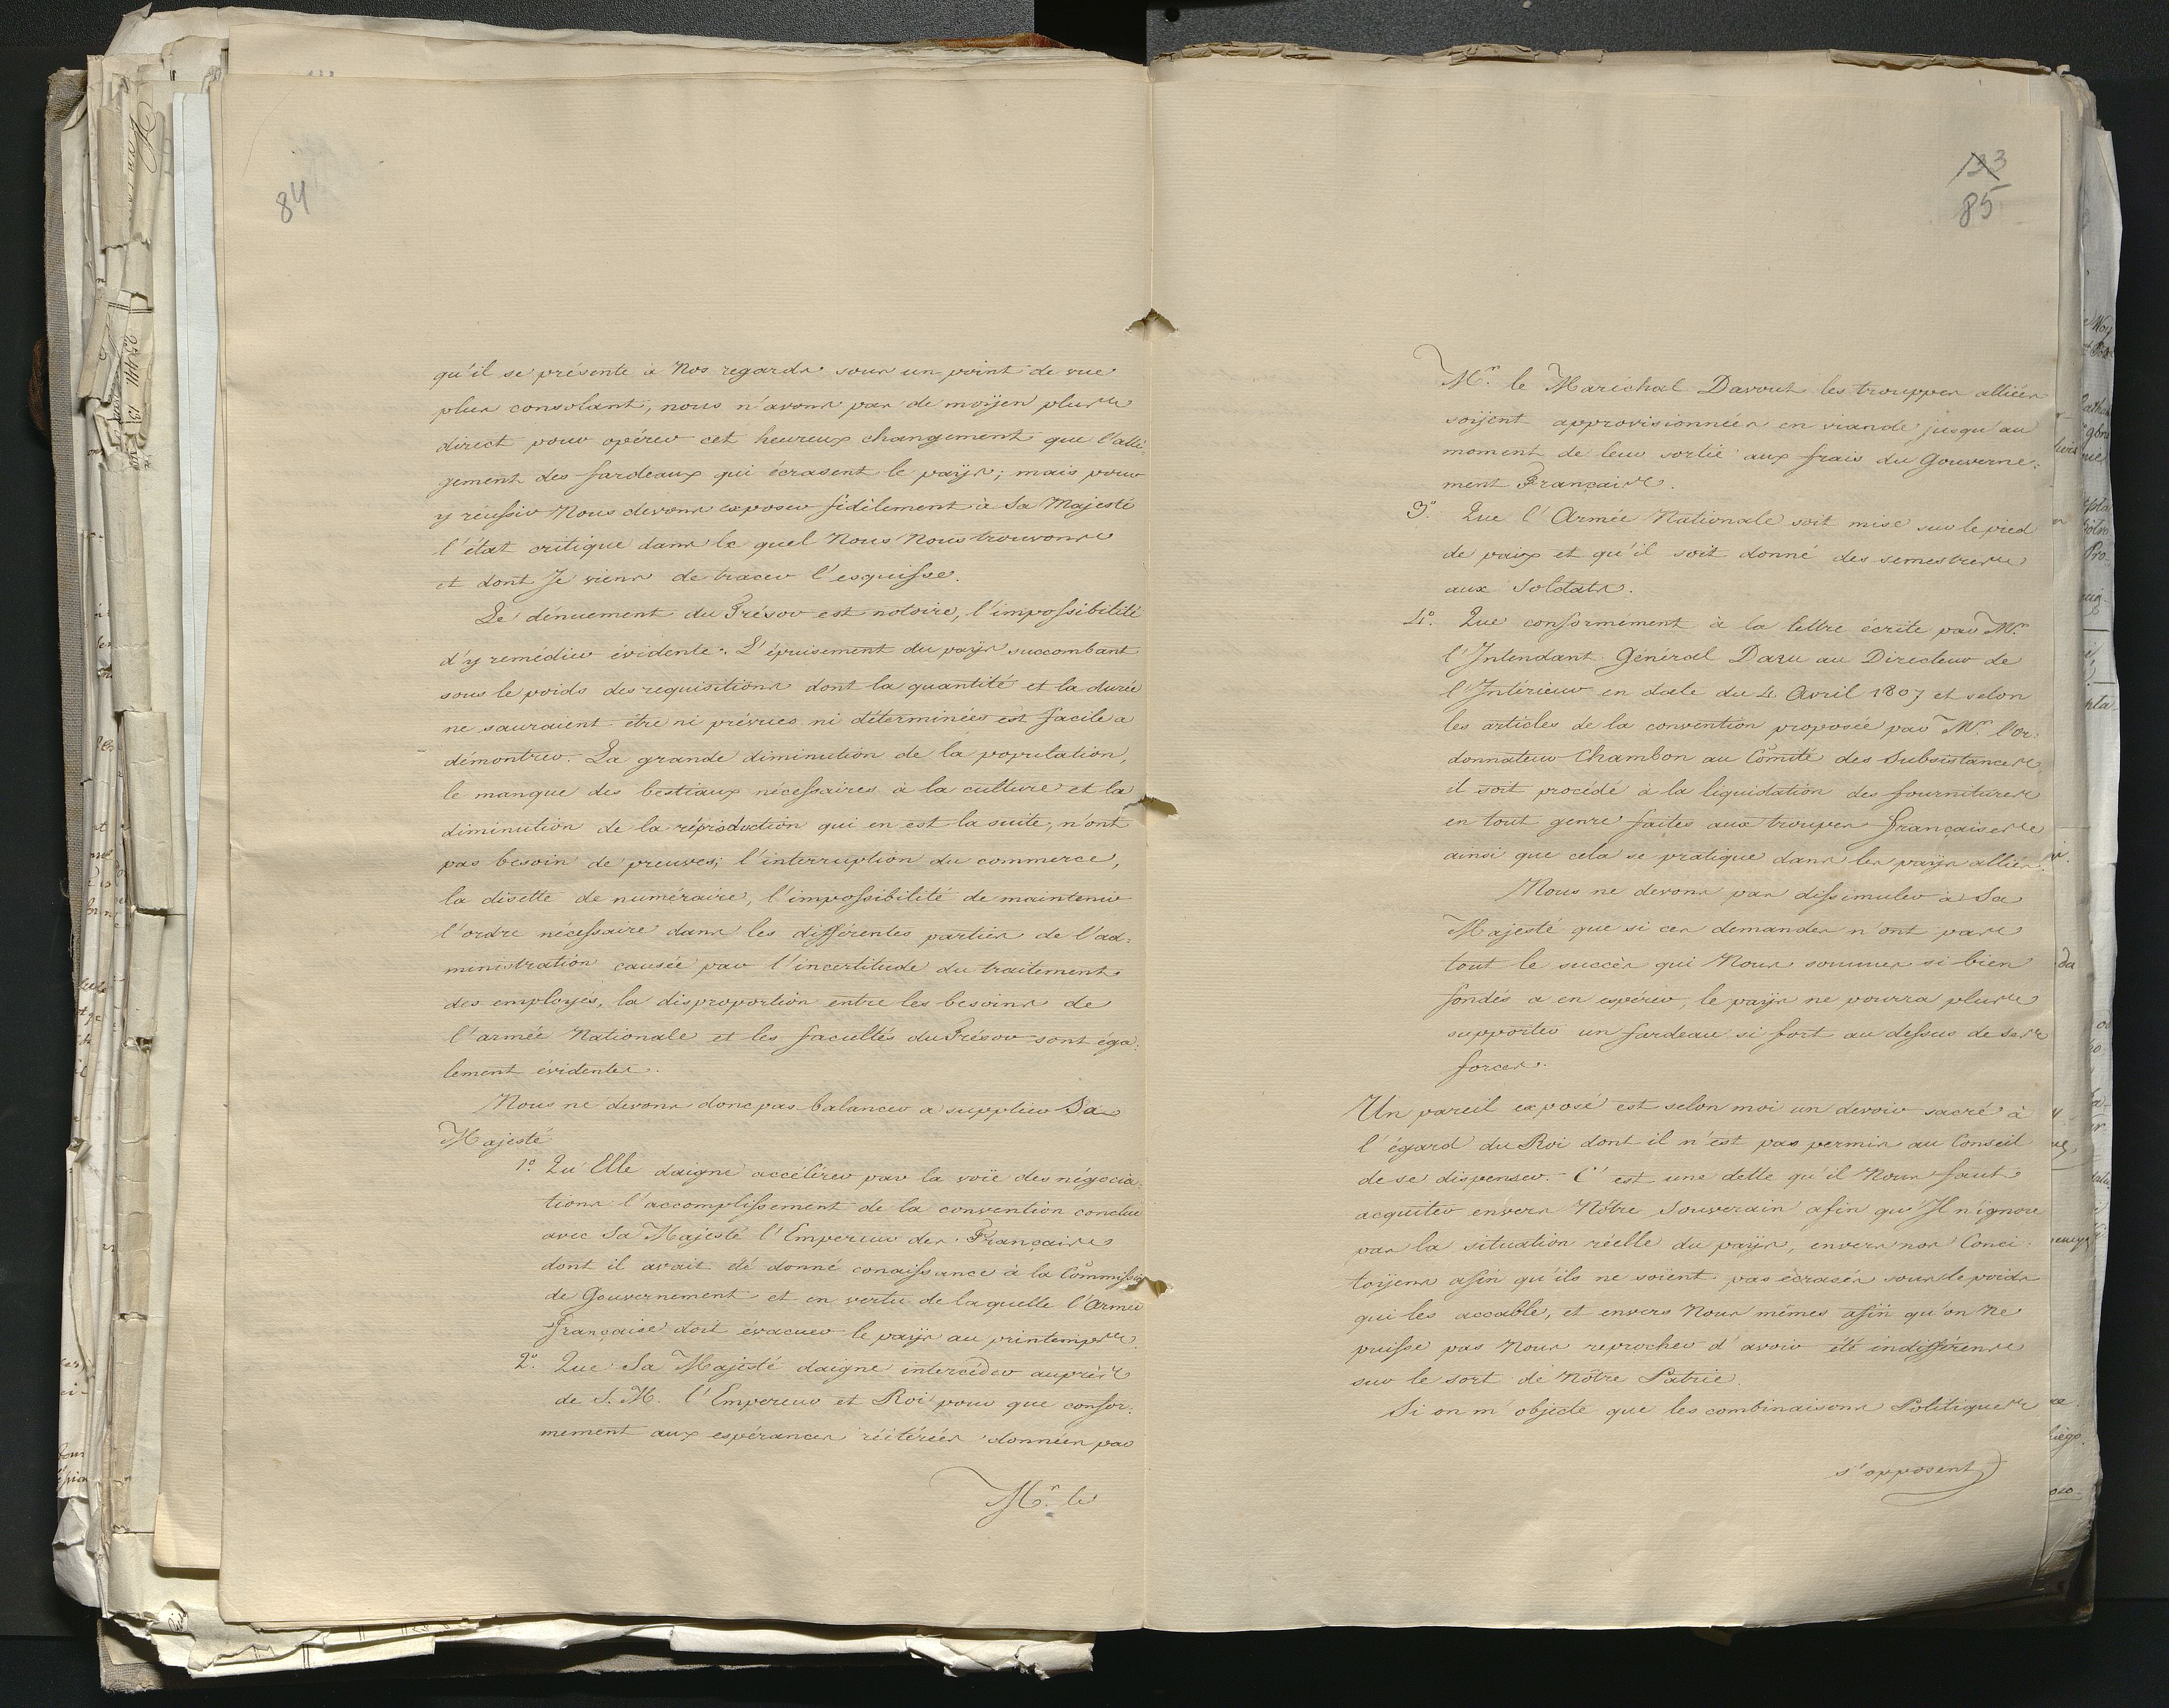 84
qu'il se présente à Nos regards sous un point de vue
plus consolant, nous n'avons pas de moÿen plus
direct pour opérer cet heureux changement que l'allé-
gement des fardeaux qui écrasent le paÿs; mais pour
y réussir Nous devons exposer fidèlement à Sa Majesté
l'état critique dans le quel Nous Nous trouvons
et dont Je viens de tracer l'esquisse.
Le dénuement du Trésor est notoire, l'impossibilité
d'y remédier évidente. L'épuisement du paÿs succombant
sous le poids des requisitions dont la quantité et la durée
ne sauraient être ni prévues ni déterminées est facile a
démontrer. La grande diminution de la population,
le manque des bestiaux nécessaires à la culture et la
diminution de la réproduction qui en est la suite, n'ont
pas besoin de preuves; l'interruption du commerce,
la disette de numéraire, l'impossibilité de maintenir
l'ordre nécessaire dans les différentes parties de l'ad:
ministration causée par l'incertitude du traitement
des employés, la disproportion entre les besoins de
l'armée Nationale et les facultés du Trésor sont éga:
lement évidentes.
Nous ne devons donc pas balancer a supplier Sa
Majesté
1º Qu'Elle daigne accélérer par la voïe des négocia:
tions l'accomplissement de la convention conclue
avec Sa Majesté l'Empereur des Français
dont il avait été donné conaissance à la Commission
de Gouvernement et en vertu de laquelle l'Armée
française doit évacuer le paÿs au printemps.
2º. Que Sa Majesté daigne intercéder auprès
de S. M. l'Empereur et Roi pour que confor:
mement aux espérances réitérées données par
Mr. le
133
85
Mr. le Maréchal Davout les trouppes alliées
soÿent approvisionnées en viande jusqu'au
moment de leur sortie aux frais du Gouverne:
ment Français.
3º. Que l'Armée Nationale soit mise sur le pied
de paix et qu'il soit donné des semestres
aux Soldats.
4º. Que conformément à la lettre écrite par Mr.
l'Intendant Général Daru au Directeur de
l'Intérieur en date du 4 Avril 1807 et selon
les articles de la convention proposée par Mr. l'or:
donnateur Chambon au Comité des Subsistances
il soit procédé à la liquidation des fournitures
en tout genre faites aux troupes françaises
ainsi que cela se pratique dans les paÿs alliés.
Nous ne devons pas dissimuler à Sa
Majesté que si ces demandes n'ont pas
tout le succès qui Nous sommes si bien
fondés a en espérer, le paÿs ne pourra plus
supporter un fardeau si fort au dessus de ses
forces.
Un pareil exposé est selon moi un devoir sacré à
l'égard du Roi dont il n'est pas permis au Conseil
de se dispenser. C'est une dette qu'il Nous faut
acquiter envers Nôtre Souverain afin qu'Il n'ignore
pas la situation réelle du paÿs, envers nos Conci:
toÿens afin qu'ils ne soïent pas écrasés sous le poids
qui les accable, et envers Nous mêmes afin qu'on Ne
puisse pas Nous reprocher d'avoir été indifférens
sur le sort de Nôtre Patrie.
Si on m'objecte que les combinaisons Politiques
s'opposent